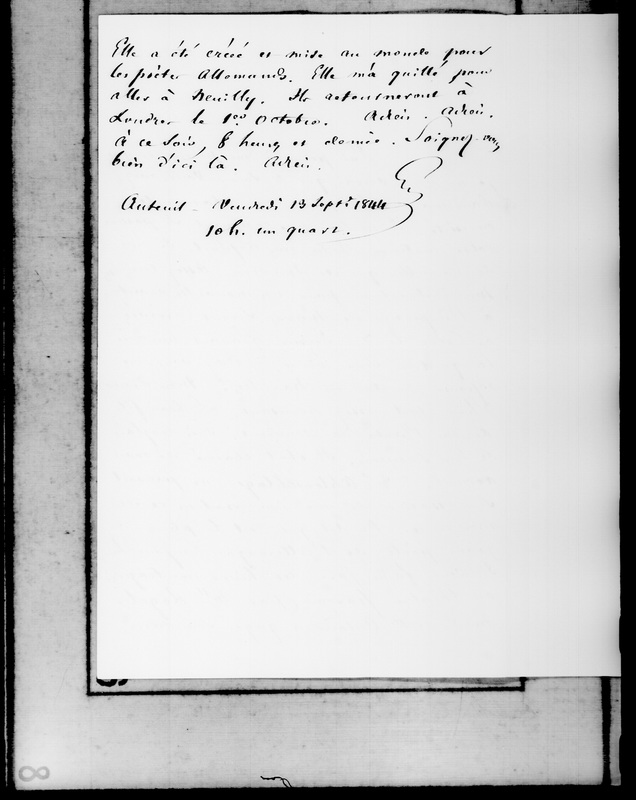 Elle a été créée et mise au monde pour
les poètes Allemands. Elle m'a quitté pour
aller à Neuilly. Ils retourneront à
Londres le 1er Octobre. Adieu. Adieu.
à ce soir, 8 heures et demie. Soignez-vous
bien d'ici là. Adieu.
Auteuil - Vendredi 13 Sept. 1844
10 h. un quart.